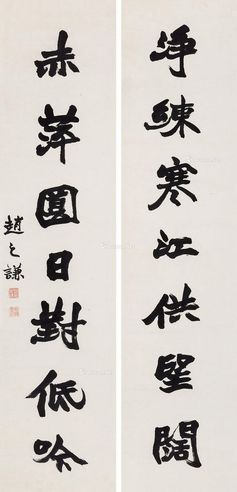 净練寒江供望闊
赤萍圓日對低吟
趙之謙